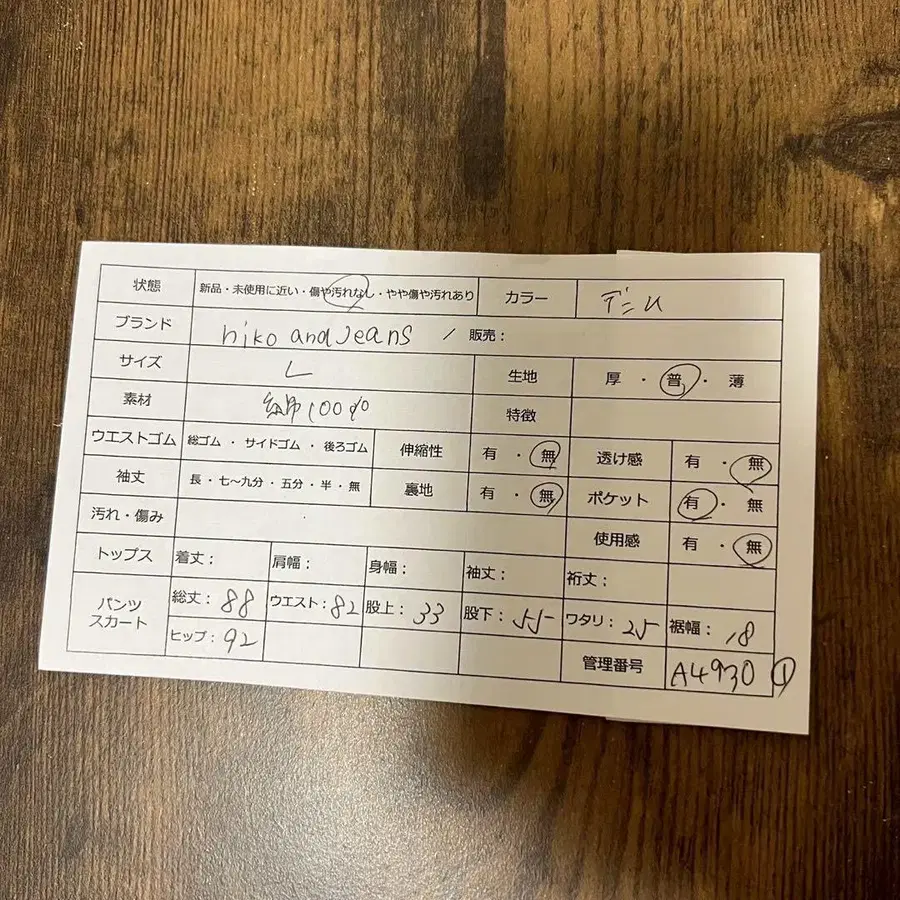 状態 新品・未使用に近い・傷や汚れなし・やや傷や汚れあり カラー デニム
ブランド niko and Jeans / 販売：
サイズ L 生地 厚・普・薄
素材 綿100% 特徴
ウエストゴム 総ゴム・サイドゴム・後ろゴム 伸縮性 有・無 透け感 有・無
袖丈 長・七～九分・五分・半・無 裏地 有・無 ポケット 有・無
汚れ・傷み 使用感 有・無
トップス 着丈： 肩幅： 身幅： 袖丈： 裄丈：
パンツ スカート 総丈：88 ウエスト：82 股上：33 股下：55 ワタリ：25 裾幅：18
ヒップ：92 管理番号 A4930 ①